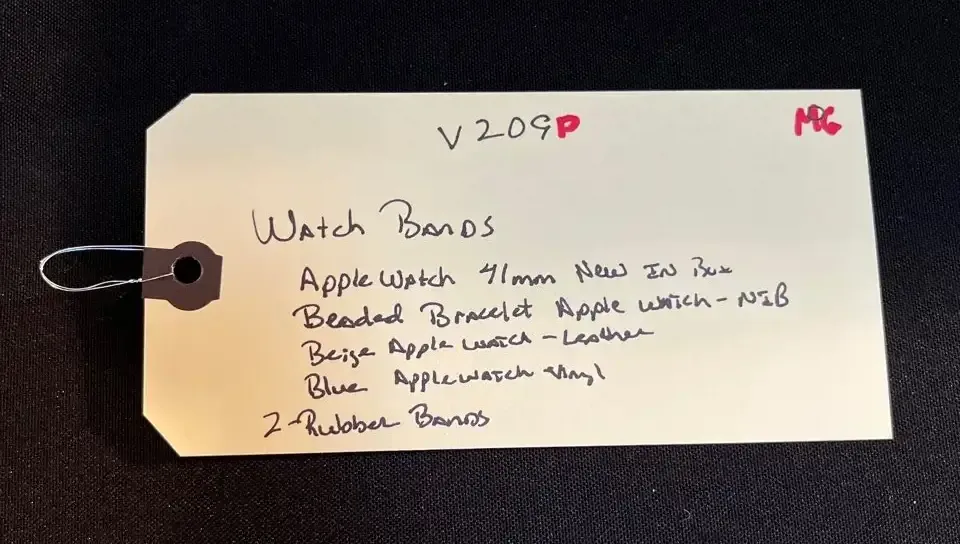 V209P
MG
Watch Bands
Apple Watch 41mm New In Box
Beaded Bracelet Apple Watch - NIB
Beige Apple Watch - Leather
Blue Apple Watch Vinyl
2 - Rubber Bands